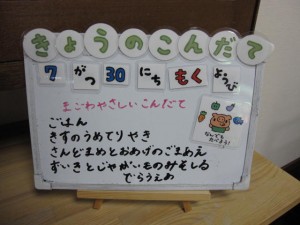 きょうのこんだて
7 がつ 30 にち もく ようび
まごわやさしいこんだて
ごはん
きすのうめてりやき
さんどまめとおあげのごまあえ
ずいきとじゃがいものみそしる
でらうえあ
なんでも
たべよう!